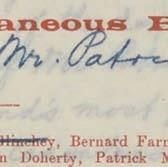 aneous B
Mr. Patri
Hinchey, Bernard Farr
n Doherty, Patrick M